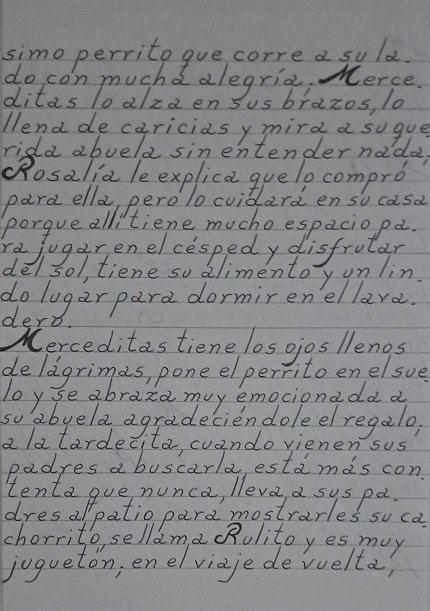 simo perrito que corre a su la.
do con mucha alegría. Merce.
ditas lo alza en sus brazos, lo
llena de caricias y mira a su que.
rida abuela sin entender nada,
Rosalía le explica que lo compró
para ella, pero lo cuidará en su casa
porque allí tiene mucho espacio pa.
ra jugar en el césped y disfrutar
del sol, tiene su alimento y un lin.
do lugar para dormir en el lava.
dero.
Merceditas tiene los ojos llenos
de lágrimas, pone el perrito en el sue.
lo y se abraza muy emocionada a
su abuela agradeciéndole el regalo;
a la tardecita, cuando vienen sus
padres a buscarla, está más con.
tenta que nunca, lleva a sus pa.
dres al patio para mostrarles su ca.
chorrito, se llama Rulito y es muy
juguetón; en el viaje de vuelta,